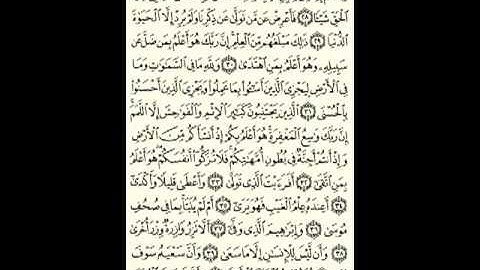 ٱلْحَقِّ شَيْـًٔا ٢٨ فَأَعْرِضْ عَن مَّن تَوَلَّىٰ عَن ذِكْرِنَا وَلَمْ يُرِدْ إِلَّا ٱلْحَيَوٰةَ
ٱلدُّنْيَا ٢٩ ذَٰلِكَ مَبْلَغُهُم مِّنَ ٱلْعِلْمِ إِنَّ رَبَّكَ هُوَ أَعْلَمُ بِمَن ضَلَّ عَن
سَبِيلِهِۦ وَهُوَ أَعْلَمُ بِمَنِ ٱهْتَدَىٰ ٣٠ وَلِلَّهِ مَا فِى ٱلسَّمَٰوَٰتِ وَمَا
فِى ٱلْأَرْضِ لِيَجْزِىَ ٱلَّذِينَ أَسَٰٓـُٔوا۟ بِمَا عَمِلُوا۟ وَيَجْزِىَ ٱلَّذِينَ أَحْسَنُوا۟
بِٱلْحُسْنَى ٣١ ٱلَّذِينَ يَجْتَنِبُونَ كَبَٰٓئِرَ ٱلْإِثْمِ وَٱلْفَوَٰحِشَ إِلَّا ٱللَّمَمَ ۚ
إِنَّ رَبَّكَ وَٰسِعُ ٱلْمَغْفِرَةِ ۚ هُوَ أَعْلَمُ بِكُمْ إِذْ أَنشَأَكُم مِّنَ ٱلْأَرْضِ
وَإِذْ أَنتُمْ أَجِنَّةٌ فِى بُطُونِ أُمَّهَٰتِكُمْ ۖ فَلَا تُزَكُّوٓا۟ أَنفُسَكُمْ ۖ هُوَ أَعْلَمُ
بِمَنِ ٱتَّقَىٰٓ ٣٢ أَفَرَءَيْتَ ٱلَّذِى تَوَلَّىٰ ٣٣ وَأَعْطَىٰ قَلِيلًا وَأَكْدَىٰٓ
٣٤ أَعِندَهُۥ عِلْمُ ٱلْغَيْبِ فَهُوَ يَرَىٰٓ ٣٥ أَمْ لَمْ يُنَبَّأْ بِمَا فِى صُحُفِ
مُوسَىٰ ٣٦ وَإِبْرَٰهِيمَ ٱلَّذِى وَفَّىٰٓ ٣٧ أَلَّا تَزِرُ وَازِرَةٌ وِزْرَ أُخْرَىٰ
٣٨ وَأَن لَّيْسَ لِلْإِنسَٰنِ إِلَّا مَا سَعَىٰ ٣٩ وَأَنَّ سَعْيَهُۥ سَوْفَ